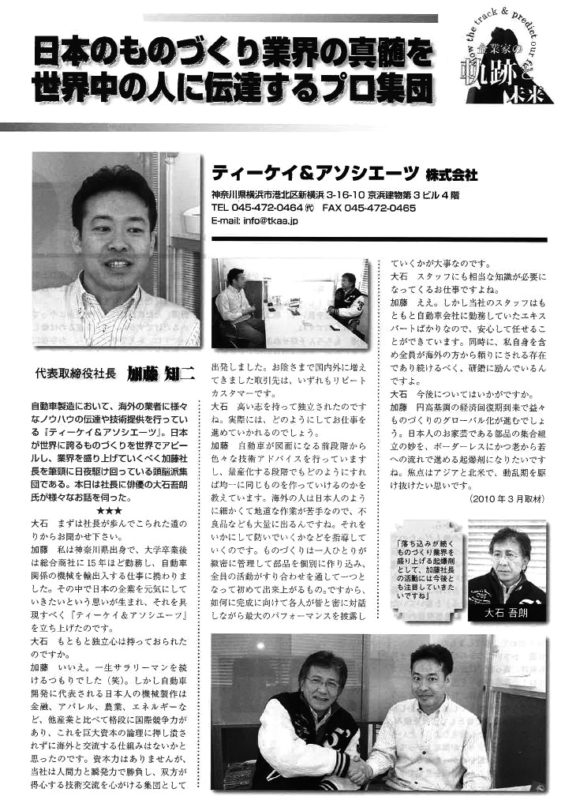 日本のものづくり業界の真髄を
世界中の人に伝達するプロ集団
know the track & predict our
企業家の
軌跡と
未来
ティーケイ&アソシエーツ 株式会社
神奈川県横浜市港北区新横浜 3-16-10 京浜建物第3ビル4階
TEL 045-472-0464㈹ FAX 045-472-0465
E-mail: info@tkaa.jp
代表取締役社長 加藤 知二
自動車製造において、海外の業者に様々
なノウハウの伝達や技術提供を行ってい
る『ティーケイ&アソシエーツ』。日本
が世界に誇るものづくりを世界でアピー
ルし、業界を盛り上げていくべく加藤社
長を筆頭に日夜駆け回っている頭脳派集
団である。本日は社長に俳優の大石吾朗
氏が様々なお話を伺った。
★★★
大石 まずは社長が歩んでこられた道の
りからお聞かせ下さい。
加藤 私は神奈川県出身で、大学卒業後
は総合商社に15年ほど勤務し、自動車
関係の機械を輸出入する仕事に携わりま
した。その中で日本の企業を元気にして
いきたいという思いが生まれ、それを具
現すべく『ティーケイ&アソシエーツ』
を立ち上げたのです。
大石 もともと独立心は持っておられた
のですか。
加藤 いいえ。一生サラリーマンを続
けるつもりでした（笑）。しかし自動車
開発に代表される日本人の機械製作は
金融、アパレル、農業、エネルギーな
ど、他産業と比べて格段に国際競争力が
あり、これを巨大資本の論理に押し潰さ
れずに海外と交流する仕組みはないかと
思ったのです。資本力はありませんが、
当社は人間力と瞬発力で勝負し、双方が
得心する技術交流を心がける集団として
出発しました。お陰さまで国内外に増え
てきました取引先は、いずれもリピート
カスタマーです。
大石 高い志を持って独立されたのです
ね。実際には、どのようにしてお仕事を
進めていかれるのでしょう。
加藤 自動車が図面になる前段階から
色々な技術アドバイスを行っています
し、量産化する段階でもどのようにすれ
ば均一に同じものを作っていけるのかを
教えています。海外の人は日本人のよう
に細かくて地道な作業が苦手なので、不
良品なども大量に出るんですね。それを
いかにして防いでいくかなどを指導して
いくのです。ものづくりは一人ひとりが
緻密に管理して部品を個別に作り込み、
全員の活動がすり合わせを通して一つと
なって初めて出来上がるもの。ですから、
如何に完成に向けて各人が皆と密に対話
しながら最大のパフォーマンスを披露し
ていくかが大事なのです。
大石 スタッフにも相当な知識が必要に
なってくるお仕事ですよね。
加藤 ええ。しかし当社のスタッフはも
ともと自動車会社に勤務していたエキス
パートばかりなので、安心して任せるこ
とができています。同時に、私自身を含
め全員が海外の方から頼りにされる存在
であり続けるべく、研鑽に励んでいるん
ですよ。
大石 今後についてはいかがですか。
加藤 円高基調の経済回復期到来で益々
ものづくりのグローバル化が進むでしょ
う。日本人のお家芸である部品の集合組
立の妙を、ボーダーレスにかつ老から若
への流れで進める起爆剤になりたいです
ね。焦点はアジアと北米で、動乱期を駆
け抜けたい思いです。
（2010年3月取材）
「落ち込みが続く
ものづくり業界を
盛り上げる起爆剤
として、加藤社長
の活動には今後と
も注目していきた
いですね」
大石 吾朗